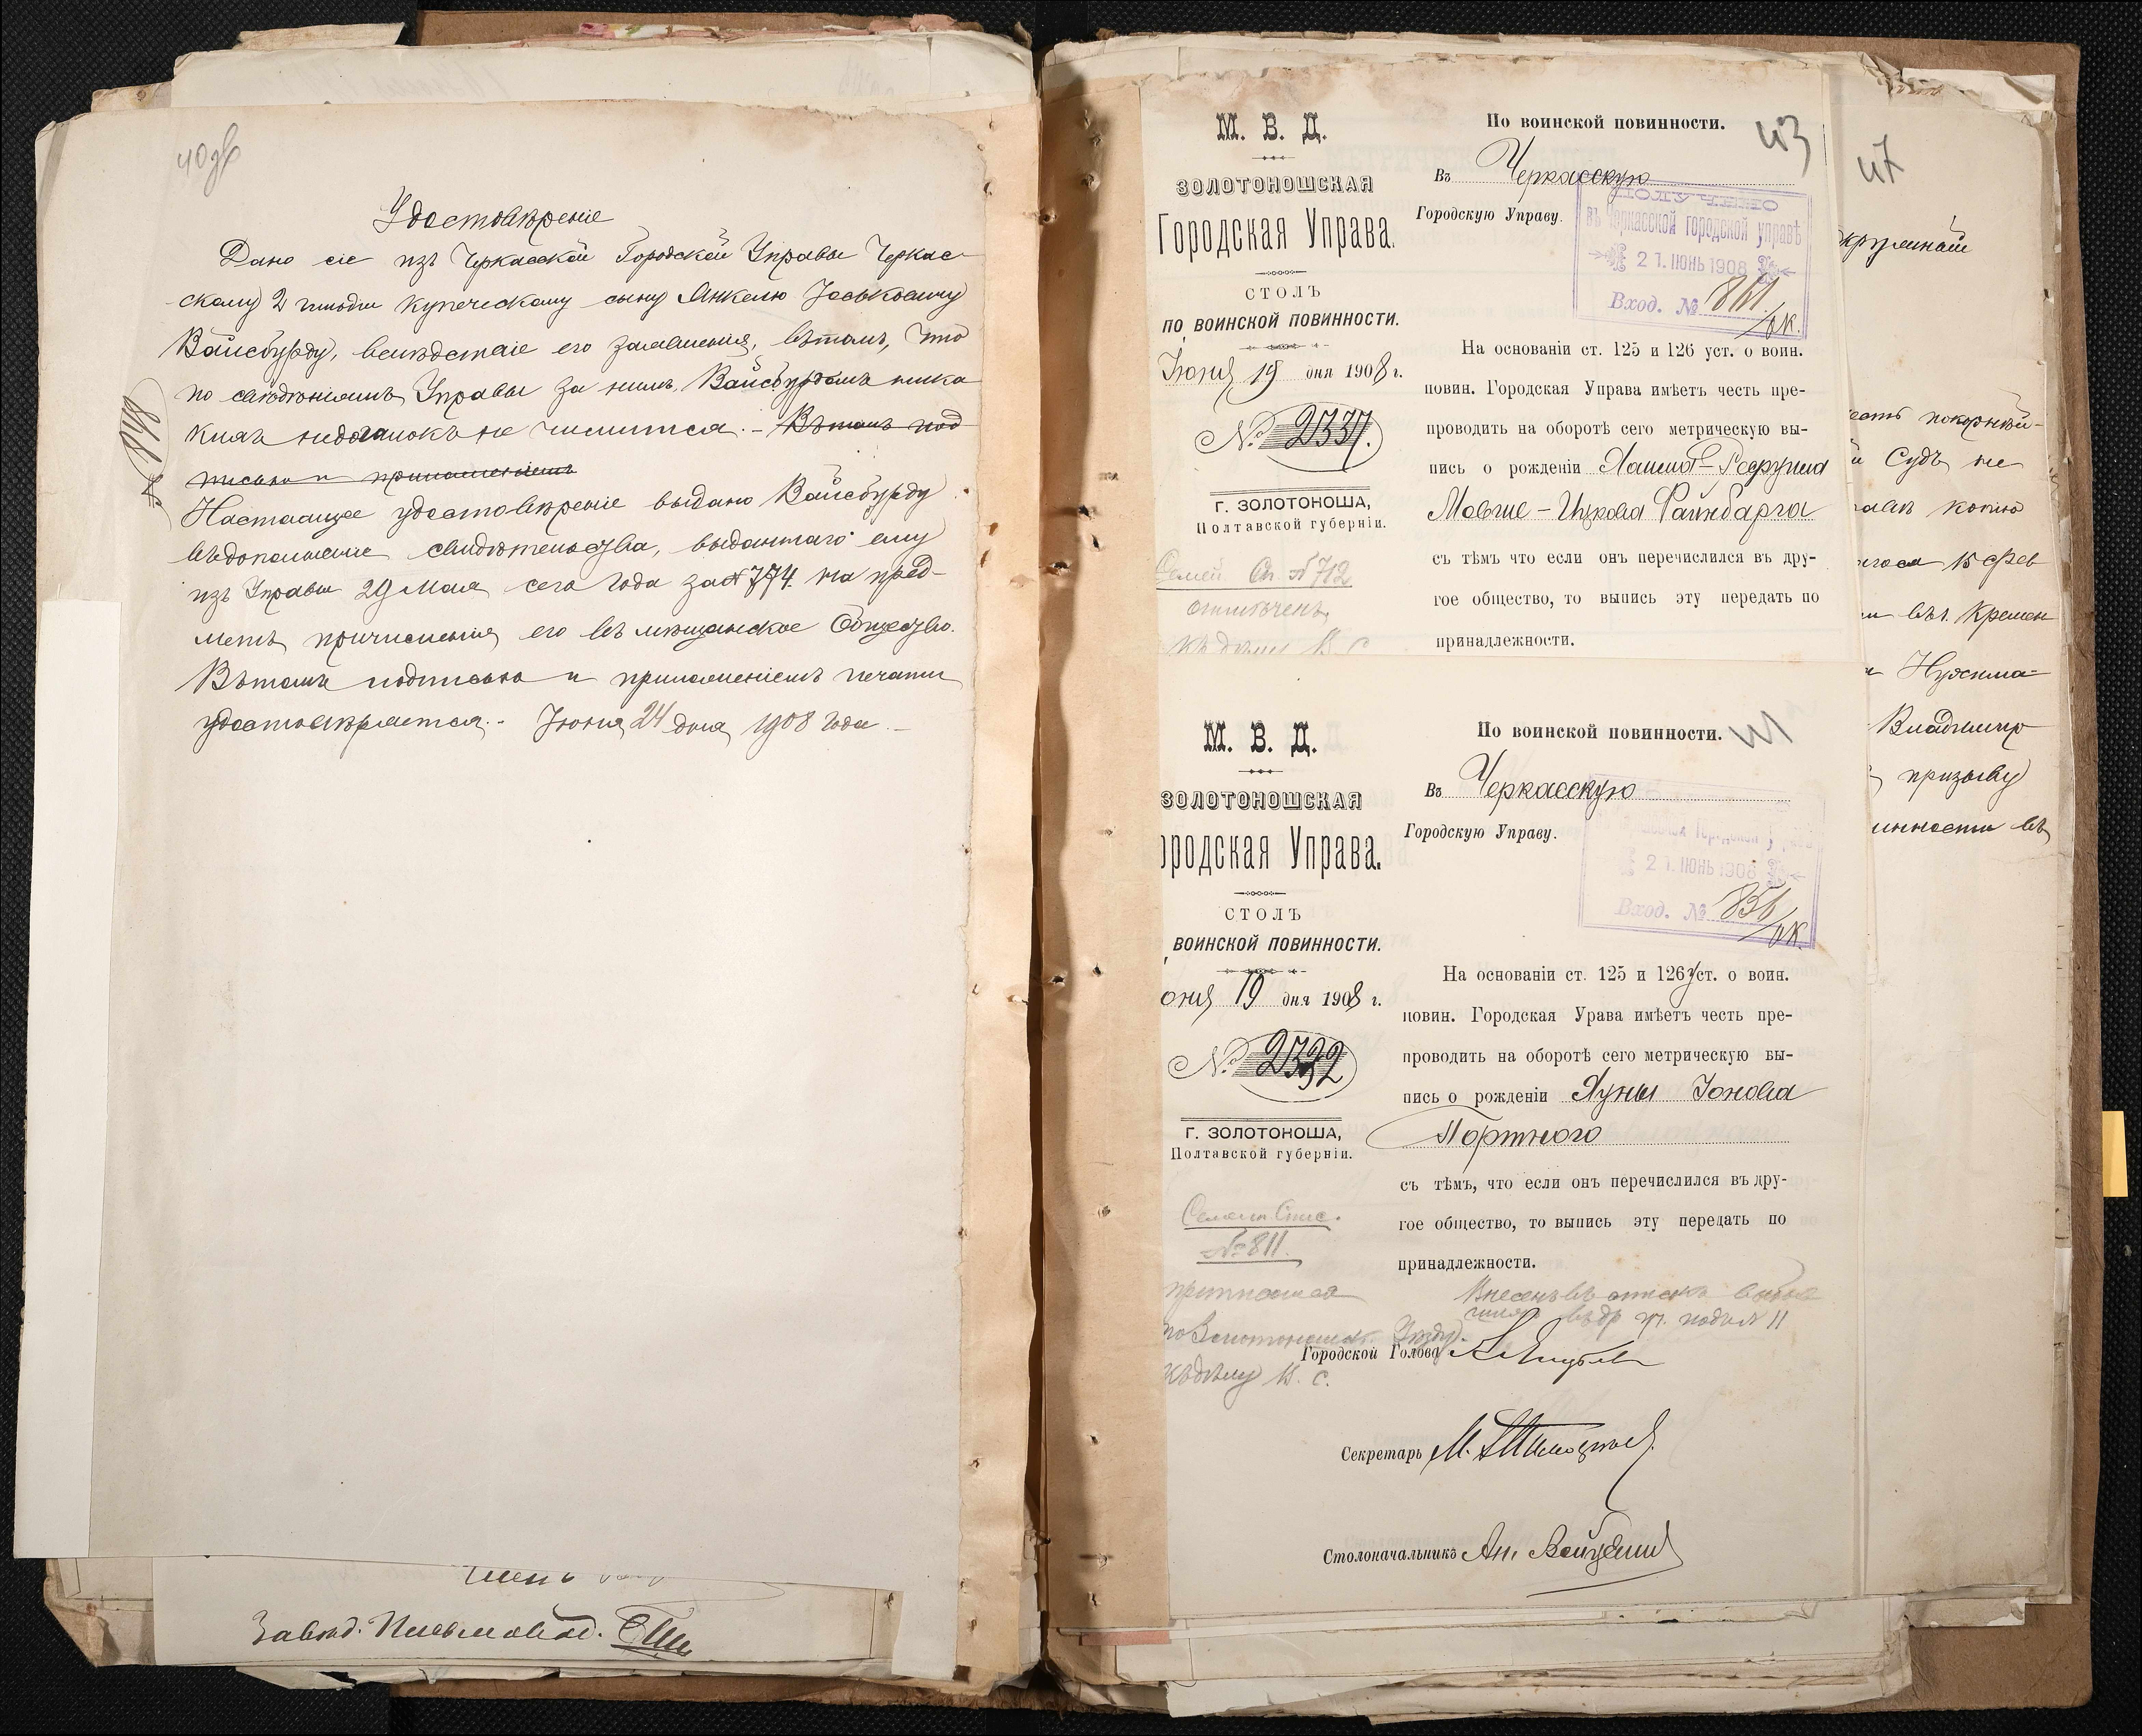 40 об
Удостовѣреніе
Дано сіе изъ Черкасской Городской Управы Черкас-
скому 2 гильдіи купеческому сыну Янкелю Іоськовичу
Вайсбурду, вслѣдствіе его заявленія, въ томъ, что
по свѣдѣніямъ Управы за нимъ, Вайсбурдомъ ника
кихъ недоимокъ не числится. – Въ томъ под
письью и приложеніемъ
Настоящее удостовѣреніе выдано Вайсбурду
въ дополненіе свидѣтельства, выданнаго ему
изъ Управы 29 Мая сего года за № 774 на пред-
метъ причисленія его въ мѣщанское Общество.
Въ томъ подписью и приложеніемъ печати
удостовѣряется. – Іюня 24 дня 1908 года. –
Завѣд. Письмовод.
М. В. Д.
ЗОЛОТОНОШСКАЯ
Городская Управа.
СТОЛЪ
ПО ВОИНСКОЙ ПОВИННОСТИ.
Іюня 19 дня 1908 г.
№ 2337.
Г. ЗОЛОТОНОША,
Полтавской губерніи.
Семей. Сп. № 712
отмѣченъ
къ дѣлу В. С
По воинской повинности.
43
Въ Черкасскую
Городскую Управу.
ПОЛУЧЕНО
въ Черкасской городской управѣ
21. ІЮНЬ 1908
Вход. №
На основаніи ст. 125 и 126 уст. о воин.
повин. Городская Управа имѣетъ честь пре-
проводить на оборотѣ сего метрическую вы-
пись о рожденіи
Мовше-Ицкова Файнбарга
съ тѣмъ что если онъ перечислился въ дру-
гое общество, то выпись эту передать по
принадлежности.
М. В. Д.
ЗОЛОТОНОШСКАЯ
ородская Управа.
СТОЛЪ
ВОИНСКОЙ ПОВИННОСТИ.
юня 19 дня 1908 г.
№
Г. ЗОЛОТОНОША,
Полтавской губерніи.
Семейн. Спис.
№ 811.
къ дѣлу В. С.
По воинской повинности.
Въ Черкасскую
Городскую Управу.
21. ІЮНЬ 1908
Вход. №
На основаніи ст. 125 и 126 уст. о воин.
повин. Городская Урава имѣетъ честь пре-
проводить на оборотѣ сего метрическую вы-
пись о рожденіи Хуны Іонова
Портного
съ тѣмъ, что если онъ перечислился въ дру-
гое общество, то выпись эту передать по
принадлежности.
Городской Голова
Секретарь М.
Столоначальникъ Ан.
47
покорнѣй-
Судъ не
копію
15 Фев
въ г. Кремен
Владимір
призыву
инности въ